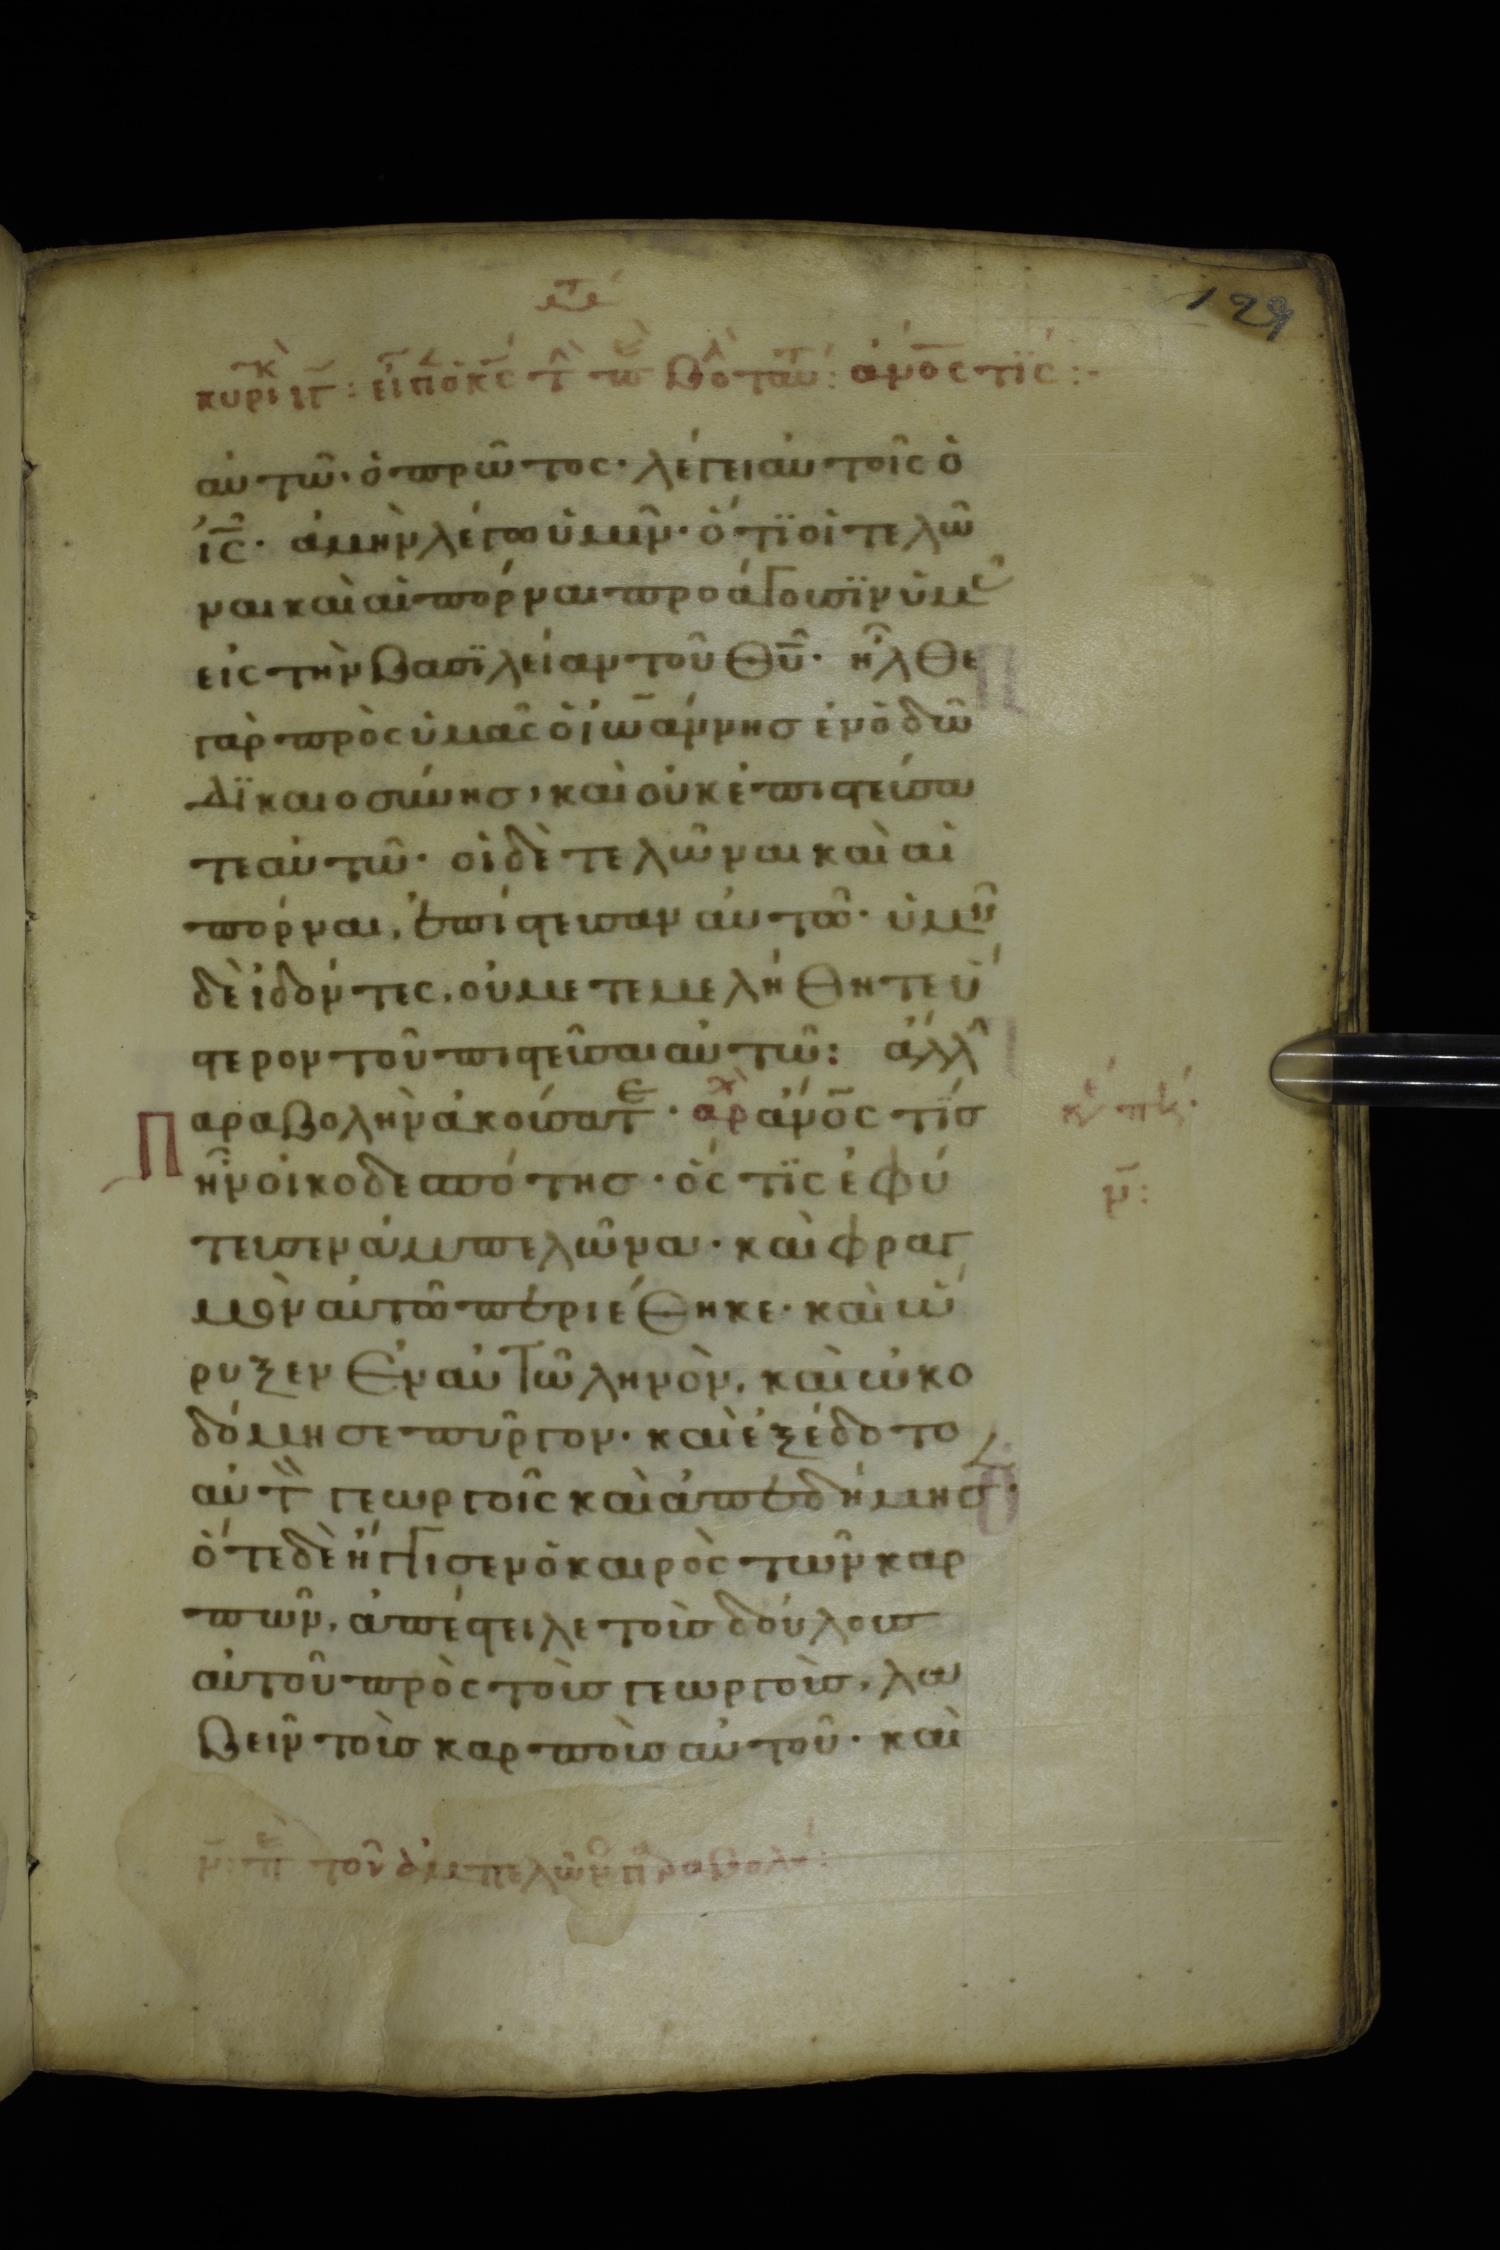 129
κυρι ιγ : εἶπ ὁ κς τ παραβολ ταυ : ἄνος τὶς :
αὐτῶ, ὁ πρῶτος. λέγει αὐτοῖς ὁ
ις. ἀμὴν λέγω ὑμῖν. ὅτι οἱ τελῶ
ναι καὶ αἱ πόρναι προάγουσϊν ὑμᾶς
εἰς τὴν βασϊλείαν τοῦ θυ. ἦλθε
γὰρ πρὸς ὑμᾶς ὁ ἰωάννησ ἐν ὁδῶ
δϊκαιοσύνησ, καὶ οὐκ ἐπιστεύσα
τε αὐτῶ. οἱ δὲ τελῶναι καὶ αἱ
πόρναι, ἐπίστευσαν αὐτῶ. ὑμεῖς
δὲ ἰδόντες, οὐ μετεμελήθητε ὕ
στερον τοῦ πιστεῦσαι αὐτῶ: ἄλλην
Παραβολὴν ἀκούσατε. αρχ ἄνος τϊσ
ἦν οἰκοδεσπότησ. ὅς τϊς ἐφύ
τευσεν ἀμπελῶνα. καὶ φραγ
μὸν αὐτῶ περιέθηκε. καὶ ὤ
ρυξεν ἐν αὐτῶ ληνὸν, καὶ ὠκο
δόμησε πύργον. καὶ ἐξέδοτο
αὐτὸν γεωργοῖς καὶ ἀπεδήμησ.
ὅτε δὲ ἤγγισεν ὁ καιρὸς τῶν καρ
πῶν, ἀπέστειλε τοὺσ δούλουσ
αὐτοῦ πρὸς τοὺσ γεωργοὺσ, λα
βεῖν τοὺσ καρποὺσ αὐτοῦ. καὶ
ν: πε τοῦ ἀμπελῶν παραβολή: